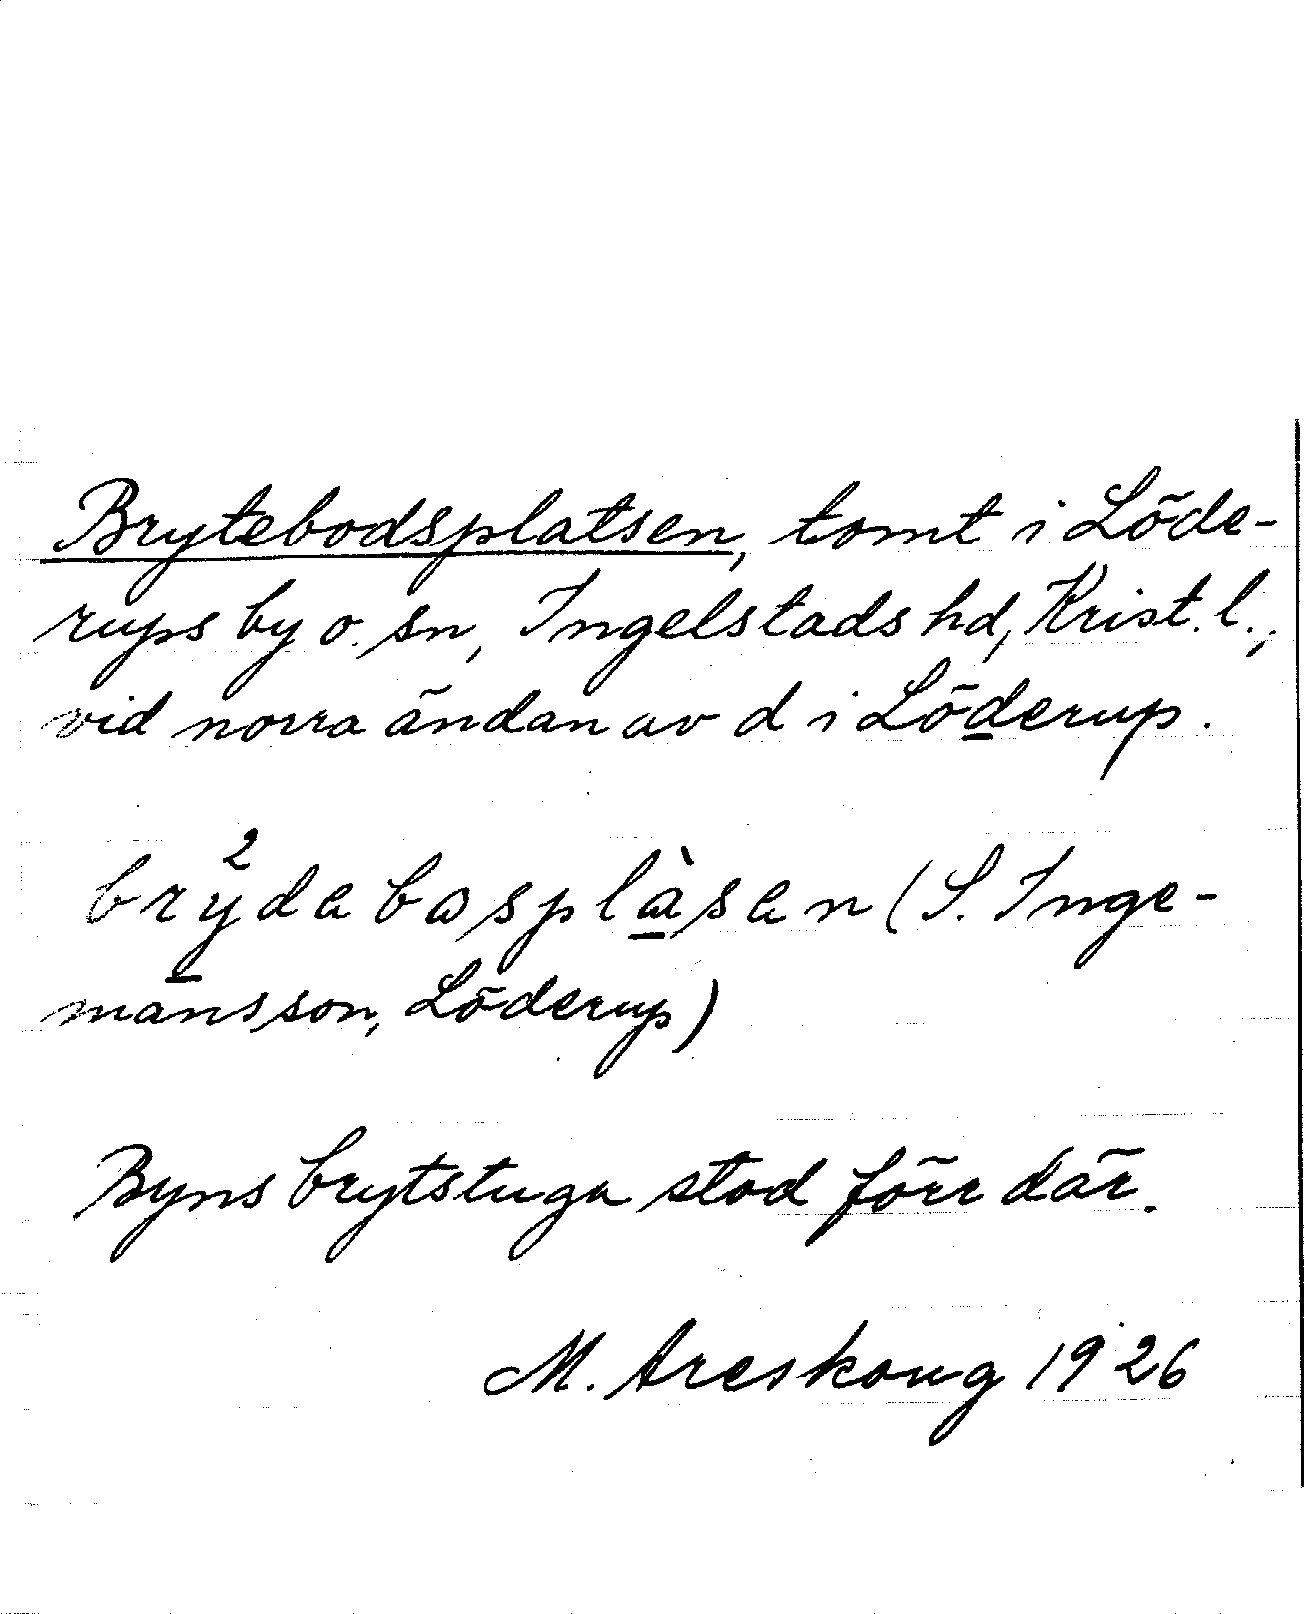 Brytebodsplatsen, tomt i Löde-
rups by o. sn, Ingelstads hd, Krist. l.,
vid norra ändan av d i Löderup.
brydabasplàsen (S. Inge-
mansson, Löderup)
Byns brytstuga stod förr där.
M. Areskoug 1926